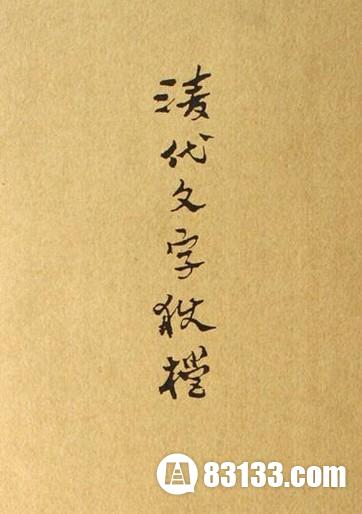 清代文字狱檔
83133.com